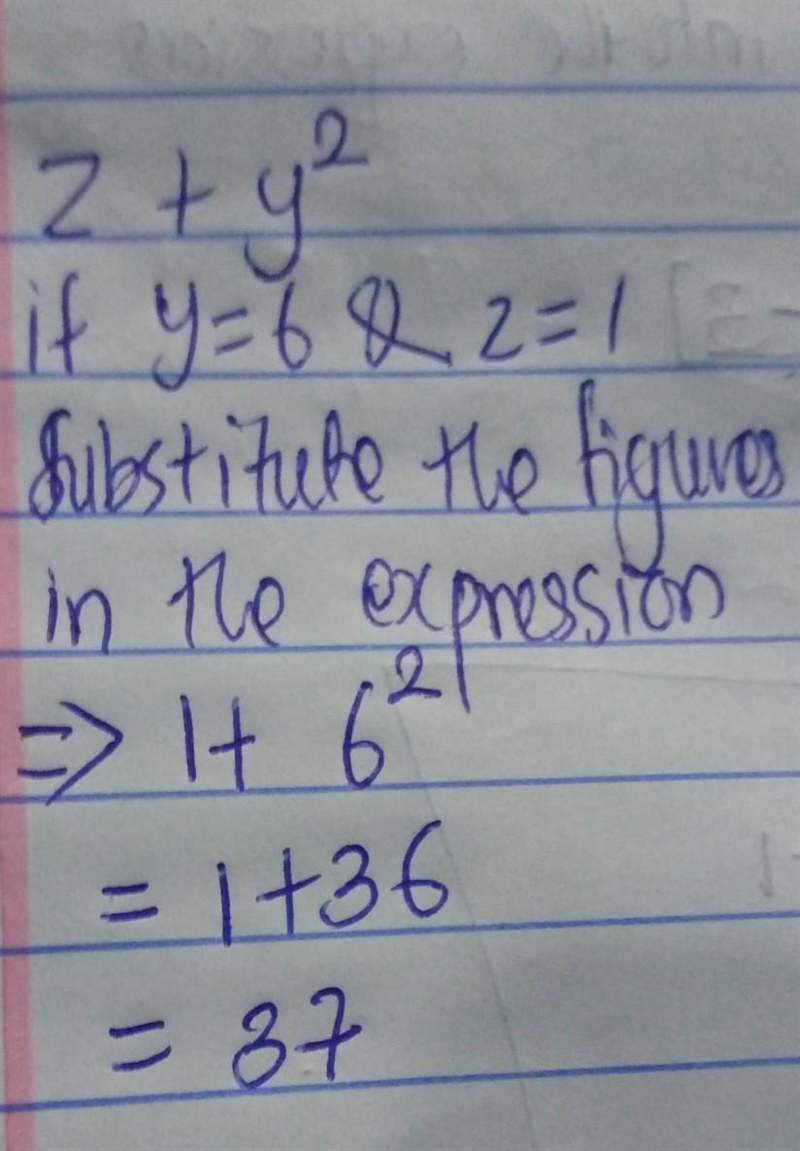 z + y²
if y=6 & z=1
Substitute the figures
in the expression
⇒ 1+ 6²
= 1+36
= 37